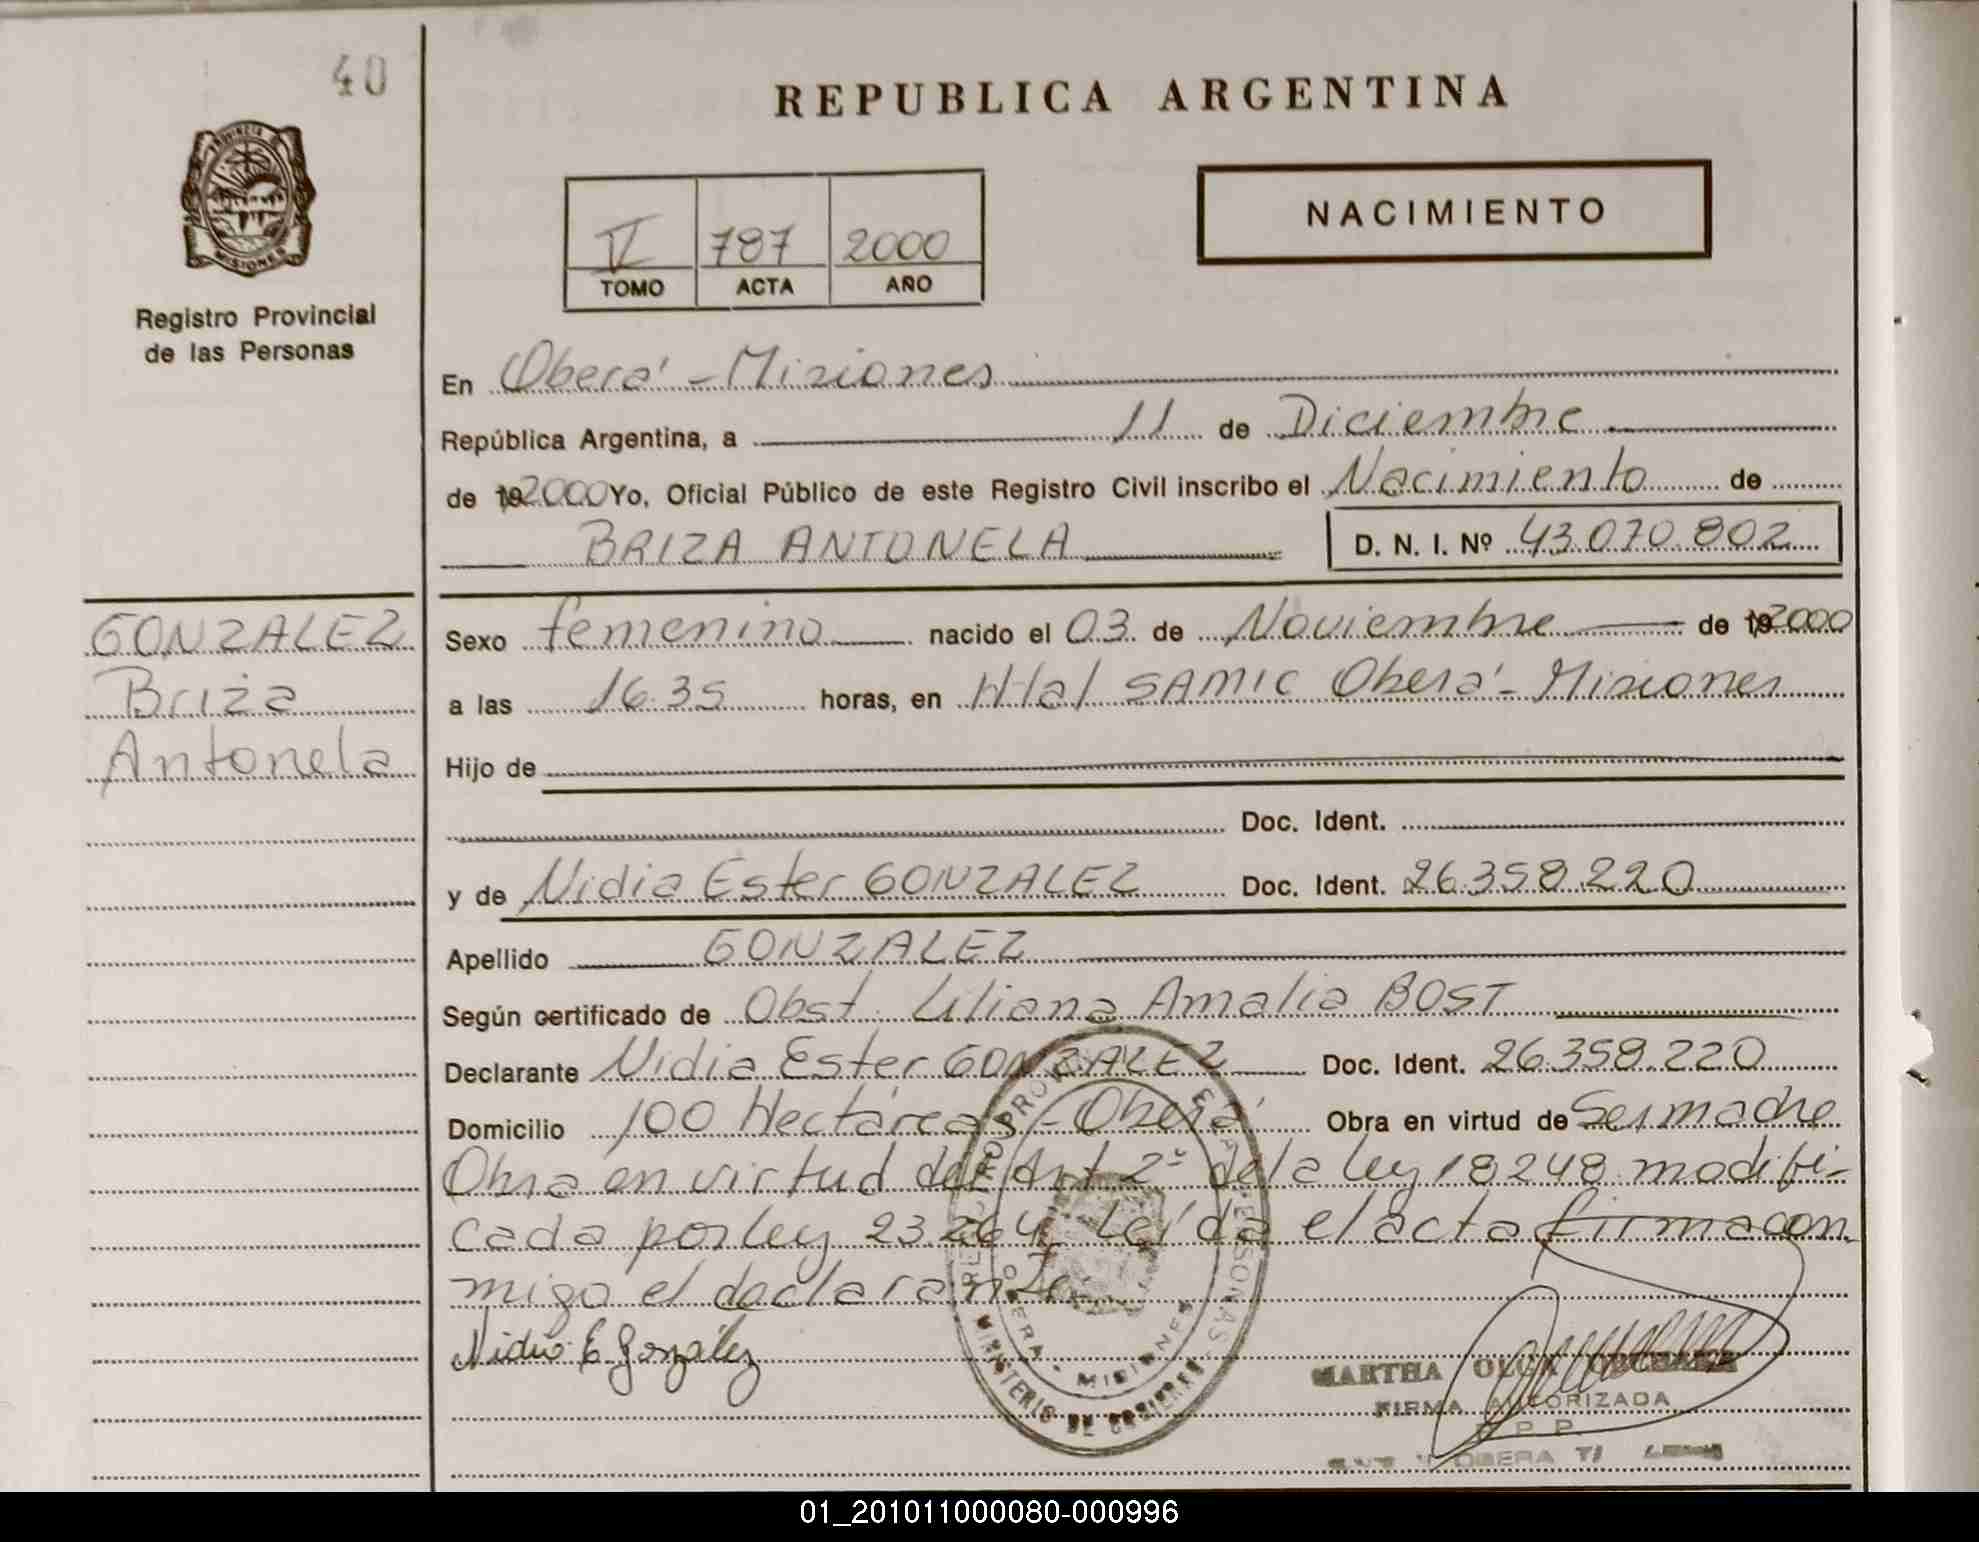 40
REPUBLICA ARGENTINA
PROVINCIA
MISIONES
Registro Provincial
de las Personas
NACIMIENTO
787 2000
TOMO ACTA AÑO
En Oberá - Misiones
República Argentina, a 11 de Diciembre
de 19 2000 Yo, Oficial Público de este Registro Civil inscribo el Nacimiento de
BRIZA ANTONELA D. N. I. Nº 43.070.802
GONZALEZ
Briza
Antonela
Sexo femenino nacido el 03 de Noviembre de 19 2000
a las 16.35 horas, en Htal SAMIC Oberá - Misiones
Hijo de
Doc. Ident.
y de Nidia Ester GONZALEZ Doc. Ident. 26.358.220
Apellido GONZALEZ
Según certificado de Obst. Liliana Amalia BOST
Declarante Nidia Ester GONZALEZ Doc. Ident. 26.358.220
Domicilio 100 Hectáreas - Oberá Obra en virtud de Ser madre
Obra en virtud del Art 2º de la ley 18248 modifi-
cada por ley 23.264. Leída el acta firma con
migo el declarante
Nidia E González
OBERA - MISIONES
MINISTERIO DE GOBIERNO
MARTHA OLGA
FIRMA AUTORIZADA
R. P. P.
OBERA
01_201011000080-000996